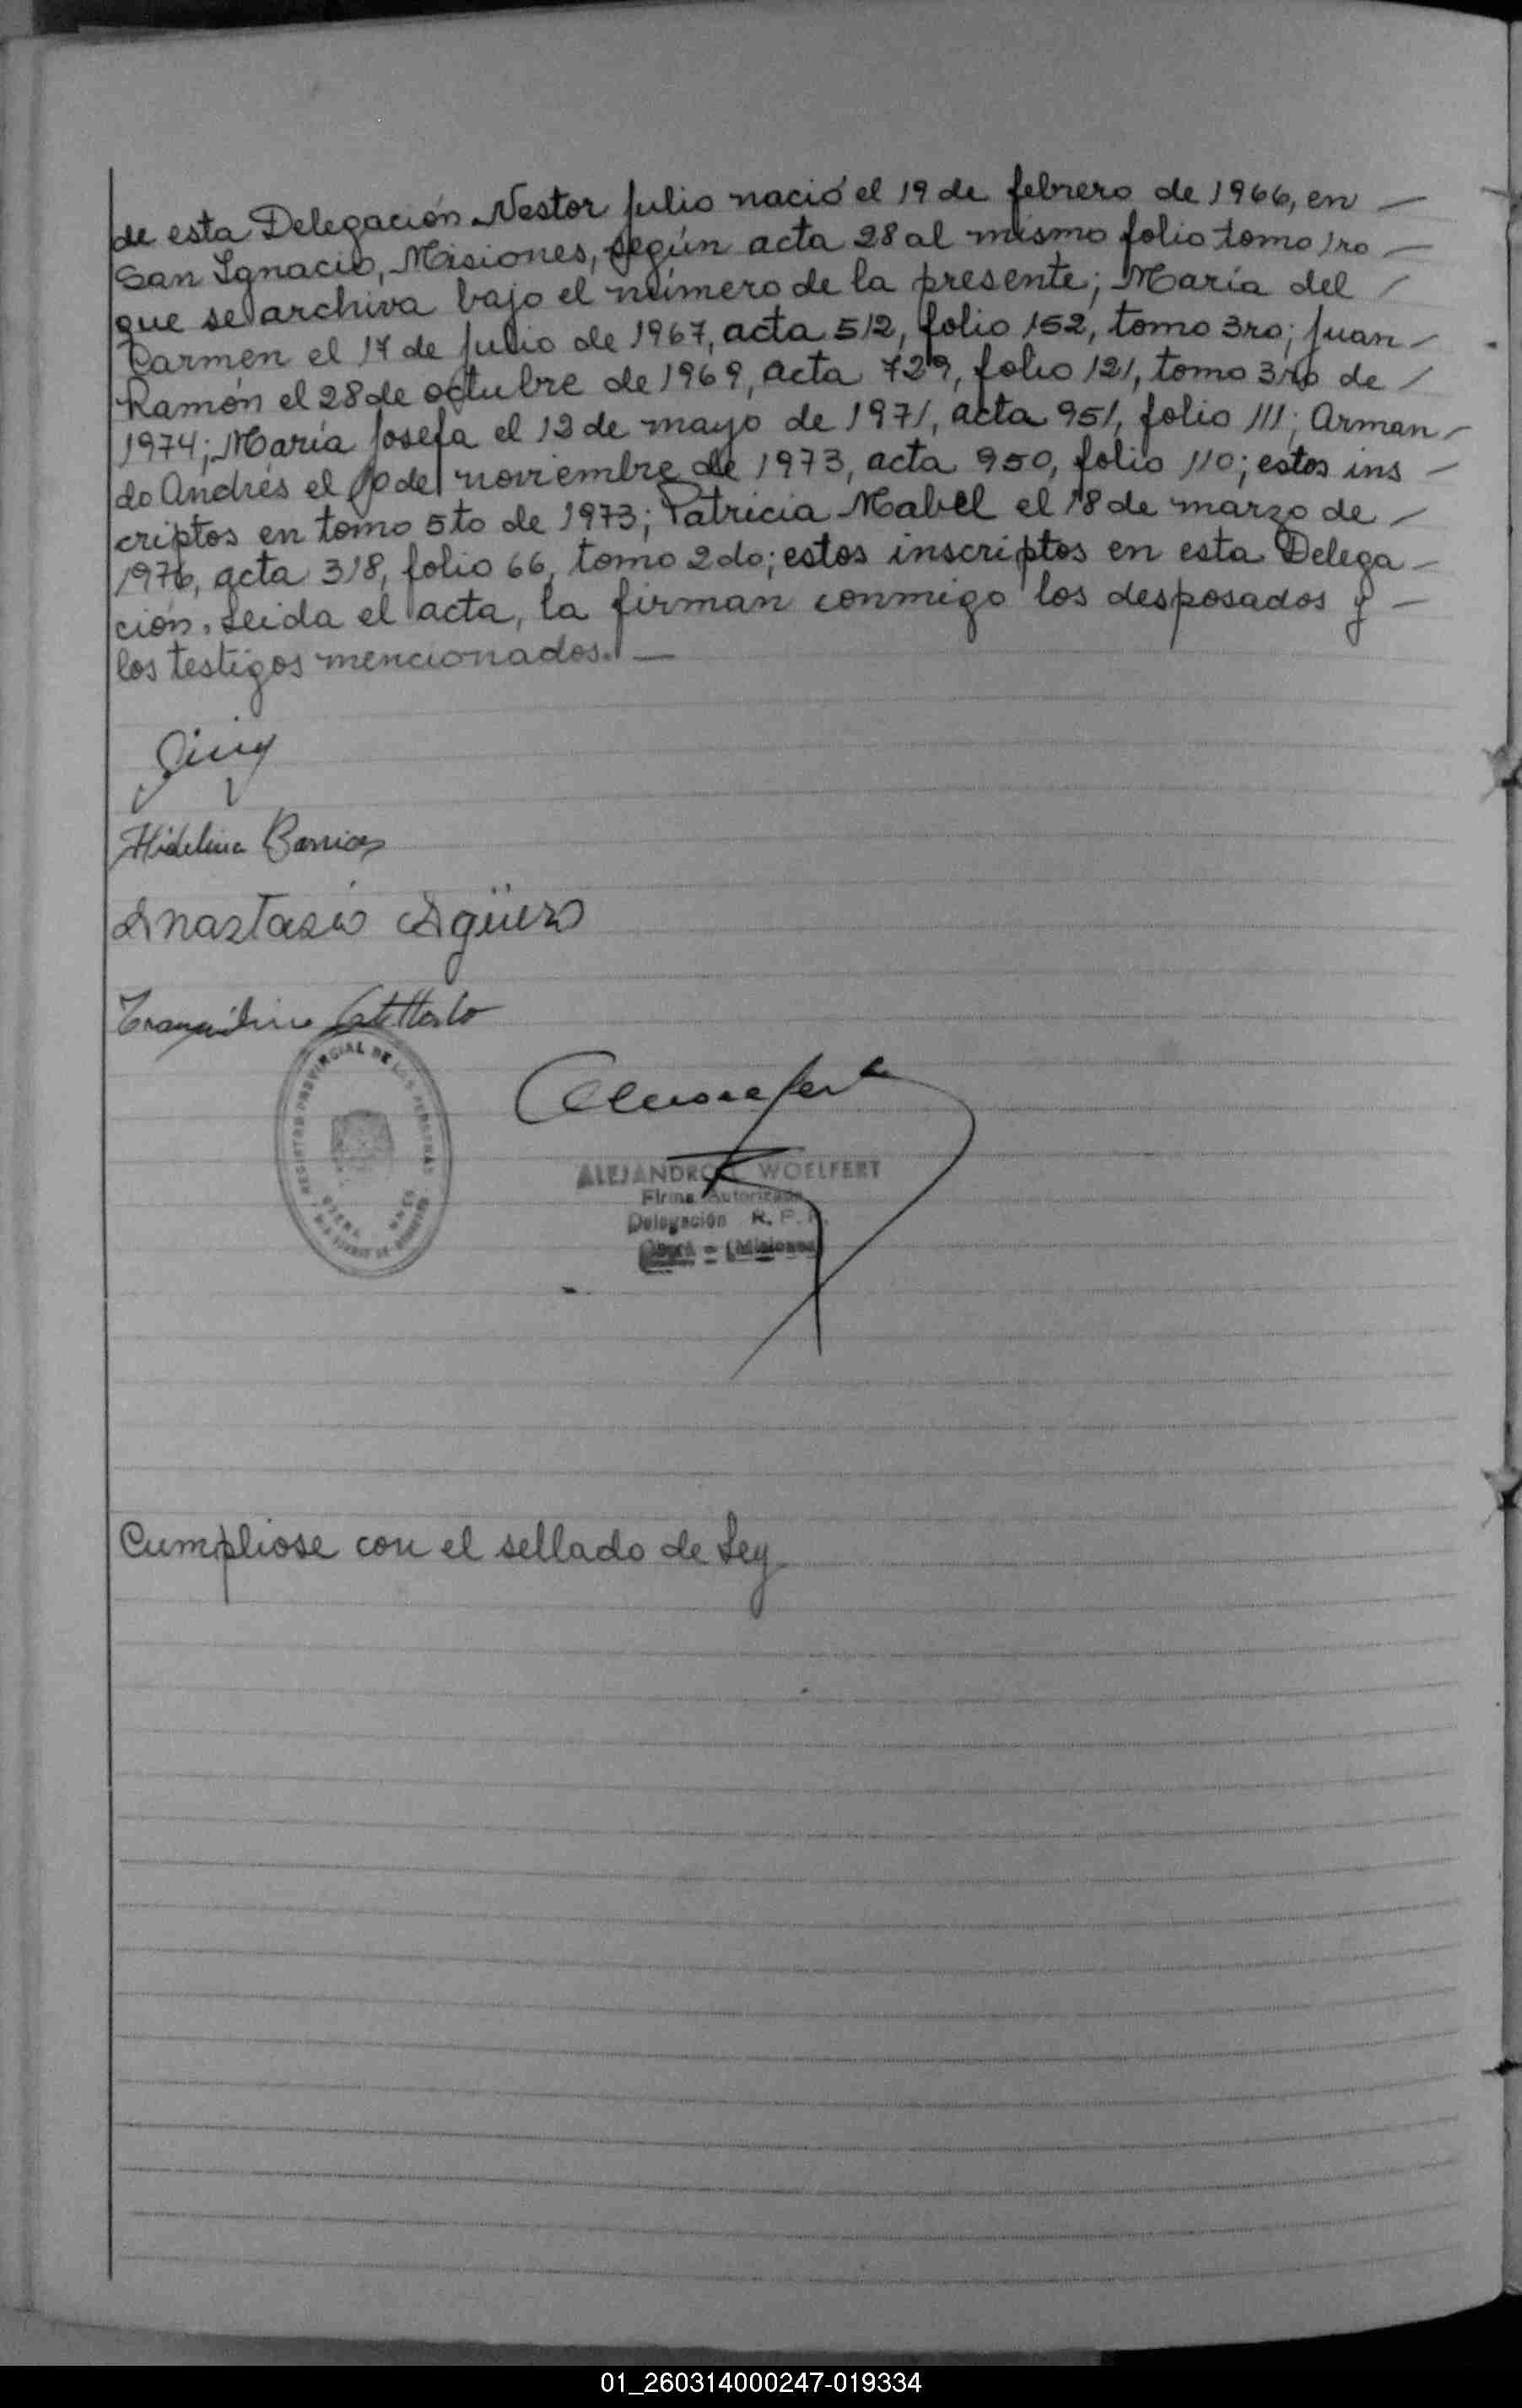 de esta Delegación. Nestor Julio nació el 19 de febrero de 1966, en —
San Ignacio, Misiones, según acta 28 al mismo folio tomo 1ro —
que se archiva bajo el número de la presente; María del /
Carmen el 17 de Julio de 1967, acta 512, folio 152, tomo 3ro; Juan —
Ramón el 28 de octubre de 1969, acta 729, folio 121, tomo 3ro de /
1974; María Josefa el 13 de mayo de 1971, acta 951, folio 111; Arman —
do Andrés el de noviembre de 1973, acta 950, folio 110; estos ins —
criptos en tomo 5to de 1973; Patricia Mabel el 18 de marzo de —
1976, acta 318, folio 66, tomo 2do; estos inscriptos en esta Delega —
ción. Leida el acta, la firman conmigo los desposados y —
los testigos mencionados. —
Barrios
Anastasio Agüero
REGISTRO PROVINCIAL DE LAS PERSONAS
ALEJANDRO WOELFERT
Firma Autorizada
Delegación R. P. P.
Oberá - (Misiones)
Cumpliose con el sellado de Ley
01_260314000247-019334